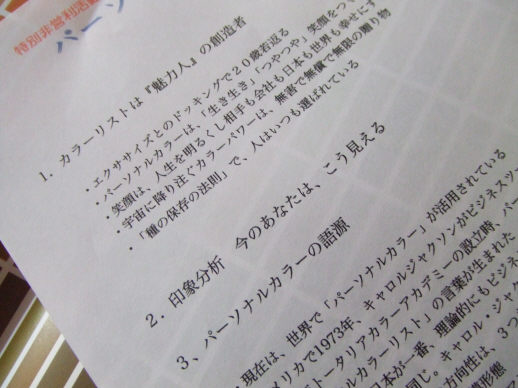 特別非営利活動
パーソ
1．カラーリストは『魅力人』の創造者
・エクササイズとのドッキングで２０歳若返る
・パーソナルカラーは、「生き生き」「つやつや」笑顔をつ
・笑顔は、人生を明るくし相手も会社も日本も世界も幸せにす
・宇宙に降り注ぐカラーパワーは、無害で無償で無限の贈り物
・「種の保存の法則」で、人はいつも選ばれている
2．印象分析　今のあなたは、こう見える
3、パーソナルカラーの語源
・現在は、世界で「パーソナルカラー」が活用されている
メリカで1973年、キャロルジャクソンがビジネスツー
トータリアカラーアカデミーの設立時、パー
ルカラーリスト」の言葉が生まれた
本が一番、理論的にもビジネ
同じ。キャロル・ジャク
方向性は、３つ
形態